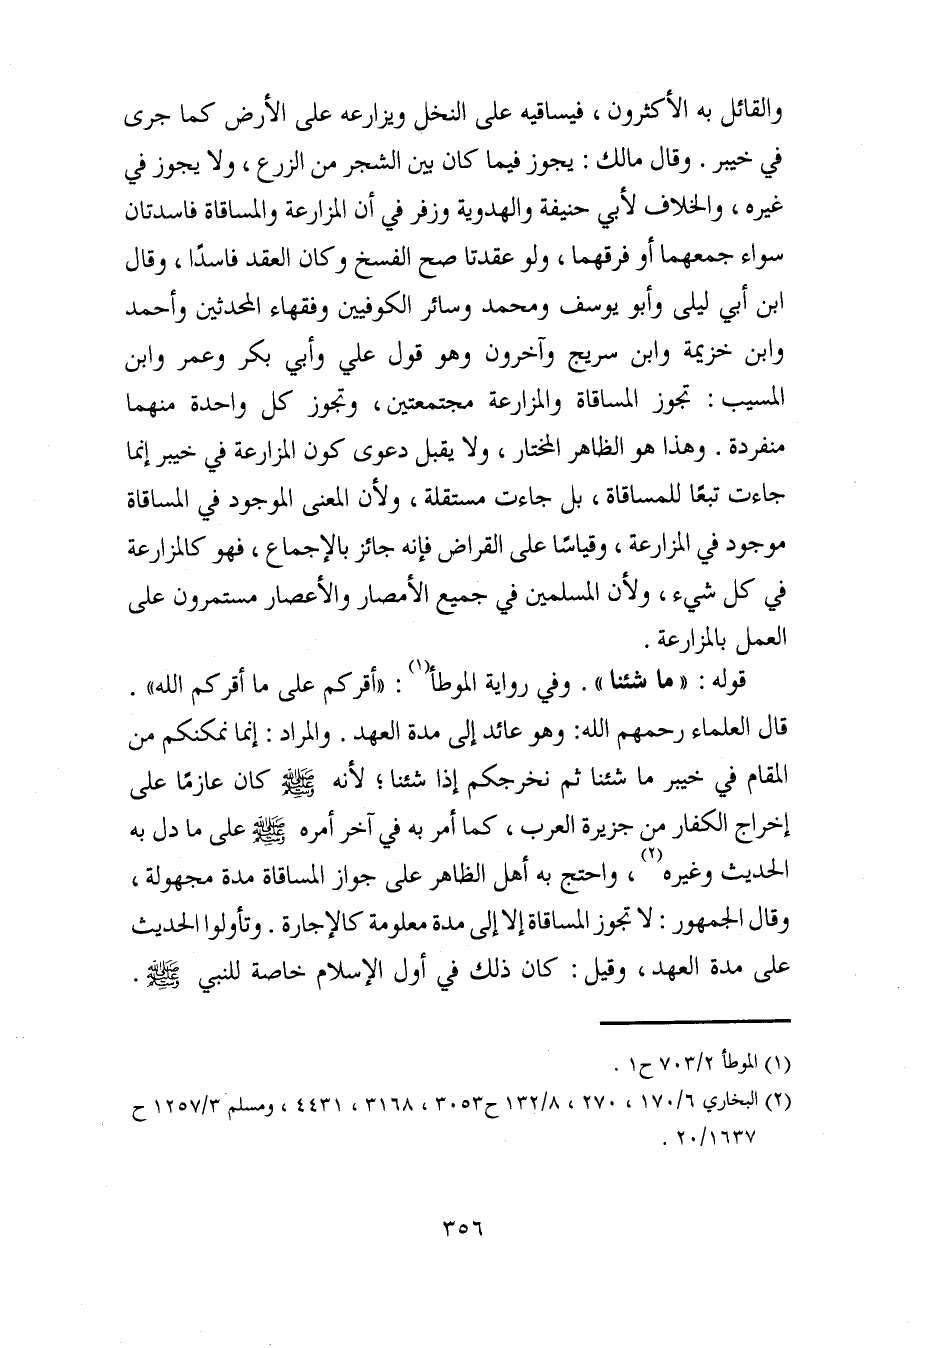 والقائل به الأكثرون ، فيساقيه على النخل ويزارعه على الأرض كما جرى
في خيبر . وقال مالك : يجوز فيما كان بين الشجر من الزرع ، ولا يجوز في
غيره ، والخلاف لأبي حنيفة والهدوية وزفر في أن المزارعة والمساقاة فاسدتان
سواء جمعهما أو فرقهما ، ولو عقدتا صح الفسخ وكان العقد فاسدًا ، وقال
ابن أبي ليلى وأبو يوسف ومحمد وسائر الكوفيين وفقهاء المحدثين وأحمد
وابن خزيمة وابن سريج وآخرون وهو قول علي وأبي بكر وعمر وابن
المسيب : تجوز المساقاة والمزارعة مجتمعتين ، وتجوز كل واحدة منهما
منفردة . وهذا هو الظاهر المختار ، ولا يقبل دعوى كون المزارعة في خيبر إنما
جاءت تبعًا للمساقاة ، بل جاءت مستقلة ، ولأن المعنى الموجود في المساقاة
موجود في المزارعة ، وقياسًا على القراض فإنه جائز بالإجماع ، فهو كالمزارعة
في كل شيء ، ولأن المسلمين في جميع الأمصار والأعصار مستمرون على
العمل بالمزارعة .
قوله : « ما شئنا » . وفي رواية الموطأ(١) : «أقركم على ما أقركم الله» .
قال العلماء رحمهم الله: وهو عائد إلى مدة العهد . والمراد : إنما نمكنكم من
المقام في خيبر ما شئنا ثم نخرجكم إذا شئنا ؛ لأنه ﷺ كان عازمًا على
إخراج الكفار من جزيرة العرب ، كما أمر به في آخر أمره ﷺ على ما دل به
الحديث وغيره(٢) ، واحتج به أهل الظاهر على جواز المساقاة مدة مجهولة ،
وقال الجمهور : لا تجوز المساقاة إلا إلى مدة معلومة كالإجارة . وتأولوا الحديث
على مدة العهد ، وقيل : كان ذلك في أول الإسلام خاصة للنبي ﷺ .
(١) الموطأ ٧٠٣/٢ ح١ .
(٢) البخاري ١٧٠/٦ ، ٢٧٠ ، ١٣٢/٨ ح٣٠٥٣ ، ٣١٦٨ ، ٤٤٣١ ، ومسلم ١٢٥٧/٣ ح
٢٠/١٦٣٧ .
٣٥٦